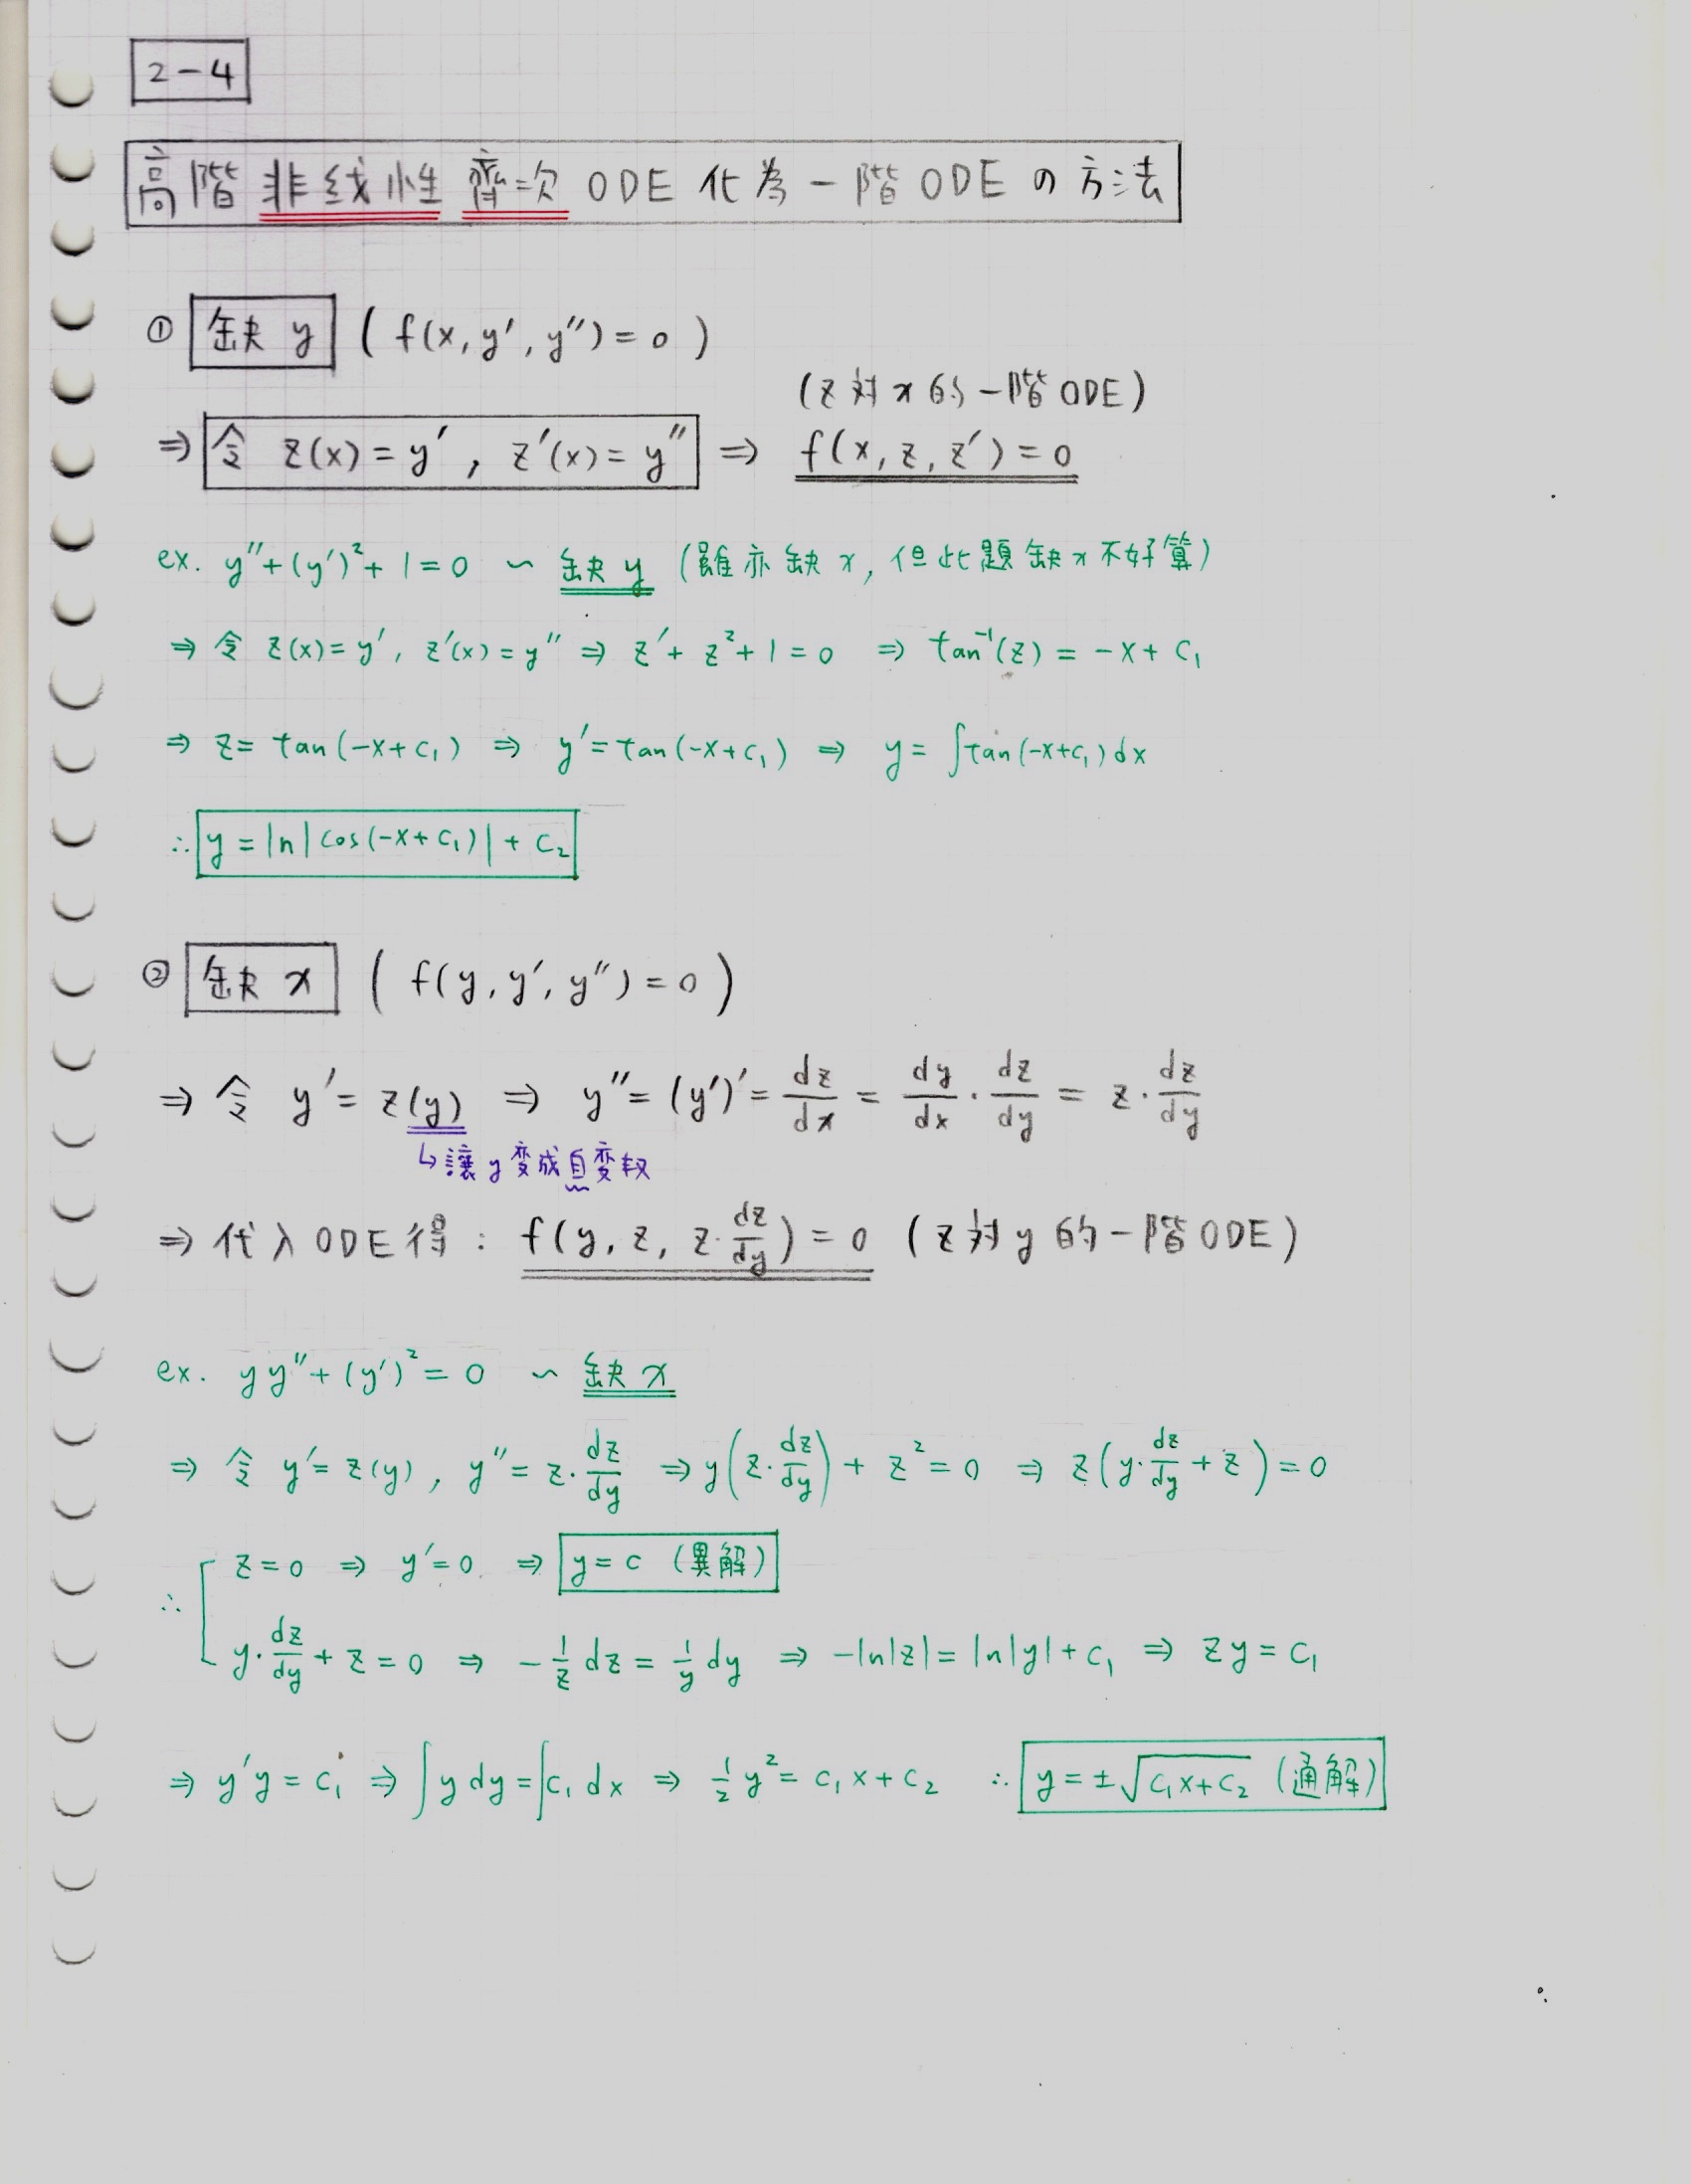 2-4
高階非线性齊次ODE化為一階ODEの方法
① 缺y ( f(x, y′, y″) = 0 )
(z對x的一階ODE)
⇒ 令 z(x) = y′ , z′(x) = y″ ⇒ f(x, z, z′) = 0
ex. y″+(y′)²+1=0 ~ 缺y (雖亦缺x, 但此題缺x不好算)
⇒ 令 z(x)=y′, z′(x)=y″ ⇒ z′+z²+1=0 ⇒ tan⁻¹(z) = -x+c₁
⇒ z= tan(-x+c₁) ⇒ y′=tan(-x+c₁) ⇒ y= ∫tan(-x+c₁)dx
∴ y = ln|cos(-x+c₁)| + c₂
② 缺x ( f(y, y′, y″) = 0 )
⇒ 令 y′ = z(y) ⇒ y″ = (y′)′ = dz/dx = dy/dx · dz/dy = z · dz/dy
↳讓y变成自变数
⇒ 代入ODE得 : f(y, z, z·dz/dy) = 0 (z對y的一階ODE)
ex. yy″+(y′)²=0 ~ 缺x
⇒ 令 y′=z(y), y″=z·dz/dy ⇒ y(z·dz/dy) + z²=0 ⇒ z(y·dz/dy + z)=0
∴ z=0 ⇒ y′=0 ⇒ y=c (異解)
y·dz/dy + z=0 ⇒ -1/z dz = 1/y dy ⇒ -ln|z|= ln|y|+c₁ ⇒ zy=c₁
⇒ y′y=c₁ ⇒ ∫y dy=∫c₁ dx ⇒ 1/2 y²= c₁x+c₂ ∴ y=±√(c₁x+c₂) (通解)